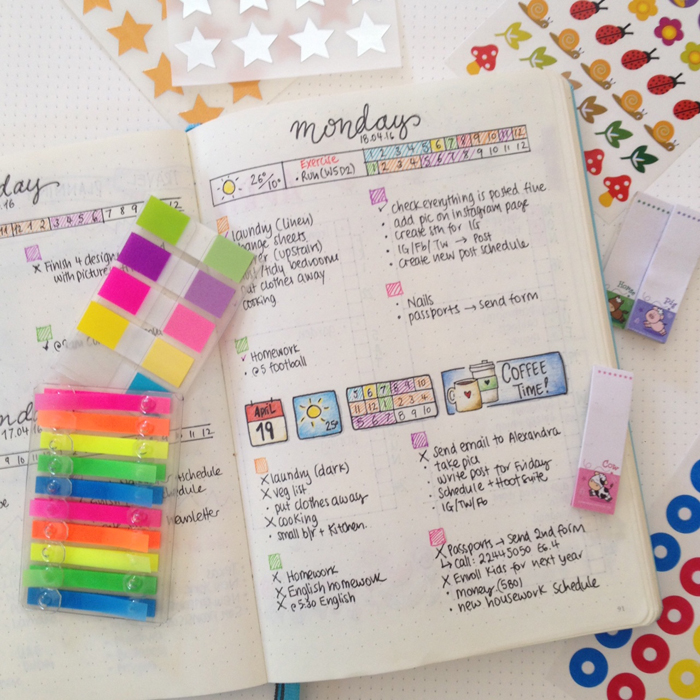 day
.16
11 12 1 2 3 4 5 6 7 8 9
x Finish 4 design
with picture
17.04.16
9 10 11 12
schedule
newsletter
monday
18.04.16
26°/10°
Exercise
• Run (W5D2)
1 2 3 4 5 6 7 8 9 10 11 12
1 2 3 4 5 6 7 8 9 10 11 12
laundry (linen)
change sheets
(upstair)
/tidy bedrooms
put clothes away
cooking
Homework
• @5 football
✓ check everything is posted fine
• add pic on Instagram page
• create sth for IG
• IG/Fb/Tw → Post
• create new post schedule
• Nails
passports → send form
APRIL
19
25°
5 6 7 8 9 10
11 12 1 2 3 4
5 6 7 8 9 10
COFFEE
TIME!
x laundry (dark)
x veg list
• put clothes away
x cooking
• small b/r + Kitchen
x Homework
x English homework
x @5:30 English
x send email to Alexandra
• take pics
• write post for Friday
• schedule + HootSuite
• IG/Tw/Fb
x Passports → Send 2nd form
↳ call: 22445050 Es.4
x Enroll Kids for next year
• money (580)
• new housework schedule
Pig
Cow